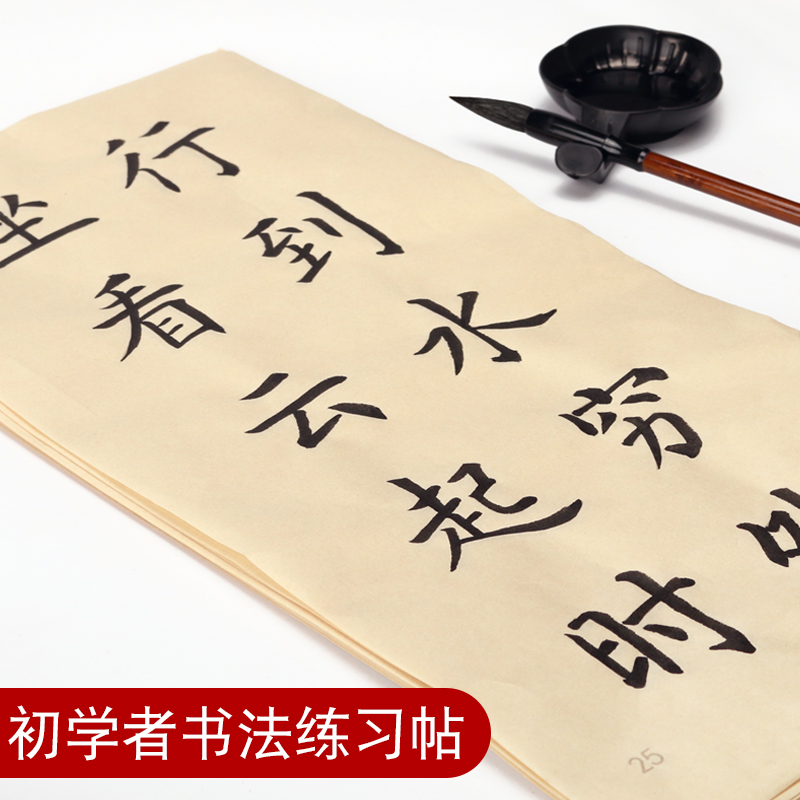 行到水穷
坐看云起时
25
初学者书法练习帖